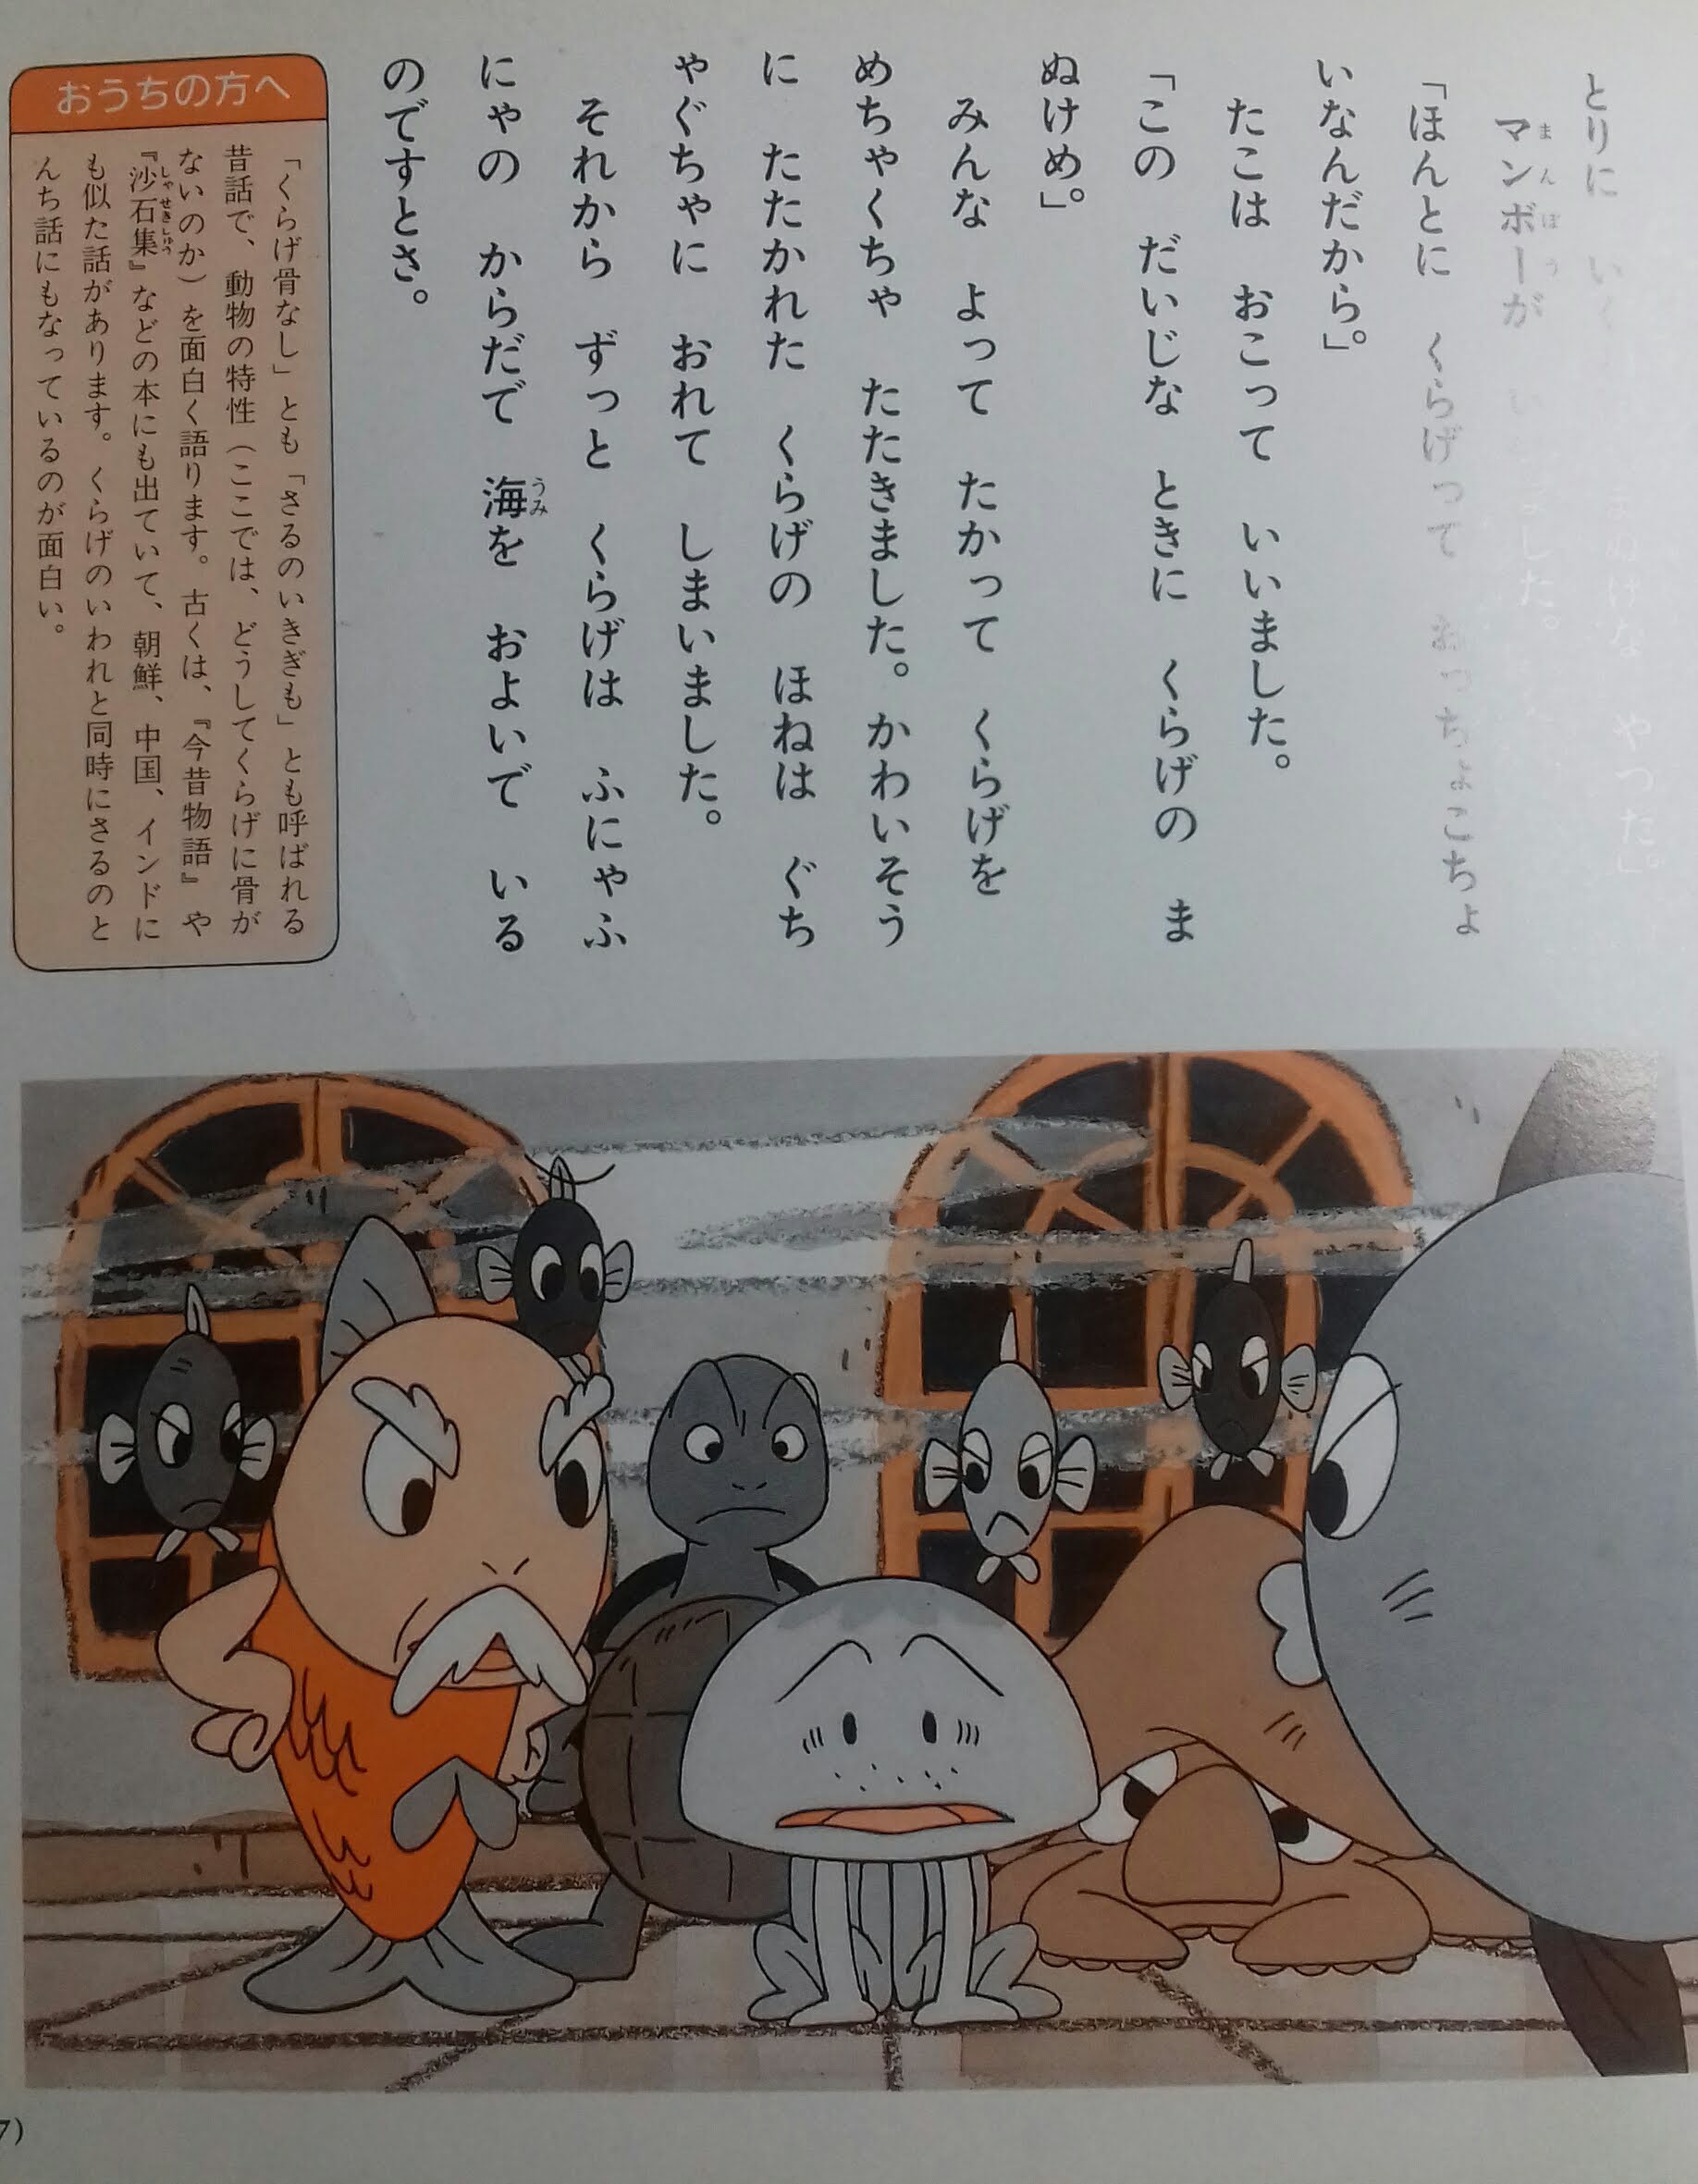 まぬけな やつだ」
とりに
マンボーが いいました。
「ほんとに くらげって おっちょこちょ
いなんだから」。
たこは おこって いいました。
「この だいじな ときに くらげの ま
ぬけめ」。
みんな よって たかって くらげを
めちゃくちゃ たたきました。かわいそう
に たたかれた くらげの ほねは ぐち
ゃぐちゃに おれて しまいました。
それから ずっと くらげは ふにゃふ
にゃの からだで 海を およいで いる
のですとさ。
おうちの方へ
「くらげ骨なし」とも「さるのいきぎも」とも呼ばれる
昔話で、動物の特性(ここでは、どうしてくらげに骨が
ないのか)を面白く語ります。古くは、『今昔物語』や
『沙石集』などの本にも出ていて、朝鮮、中国、インドに
も似た話があります。くらげのいわれと同時にさるのと
んち話にもなっているのが面白い。
7)